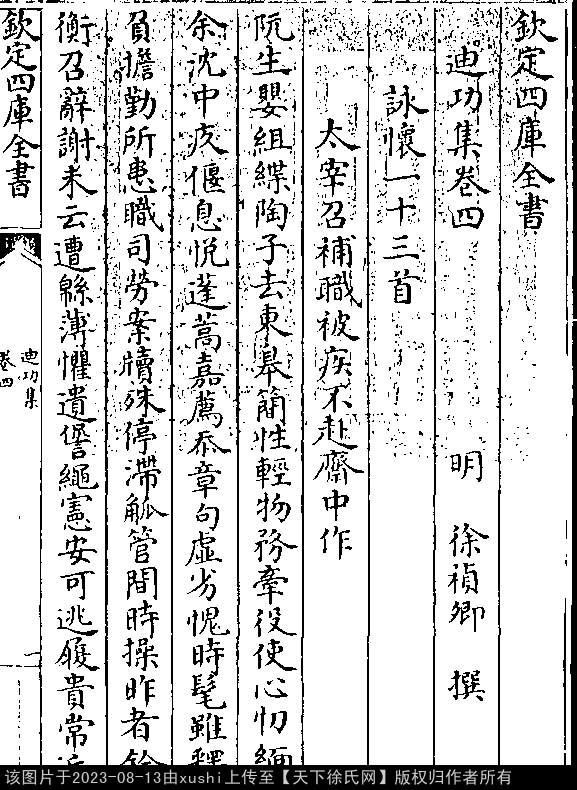 欽定四庫全書
迪功集卷四 明 徐禎卿 撰
詠懷一十三首
太宰召補職被疾不赴齋中作
阮生嬰組緤陶子去東皐簡性輕物務牽役使心忉緬
余沈中疢偃息悅蓬蒿嘉薦忝章句虛劣愧時髦雖釋
負擔勤所患職司勞案牘殊停滯觚管間時操昨者
衡召辭謝未云遭緜薄懼遺諐繩憲安可逃履貴常
欽定四庫全書
迪功集
卷四
一
该图片于2023-08-13由xushi上传至【天下徐氏网】版权归作者所有